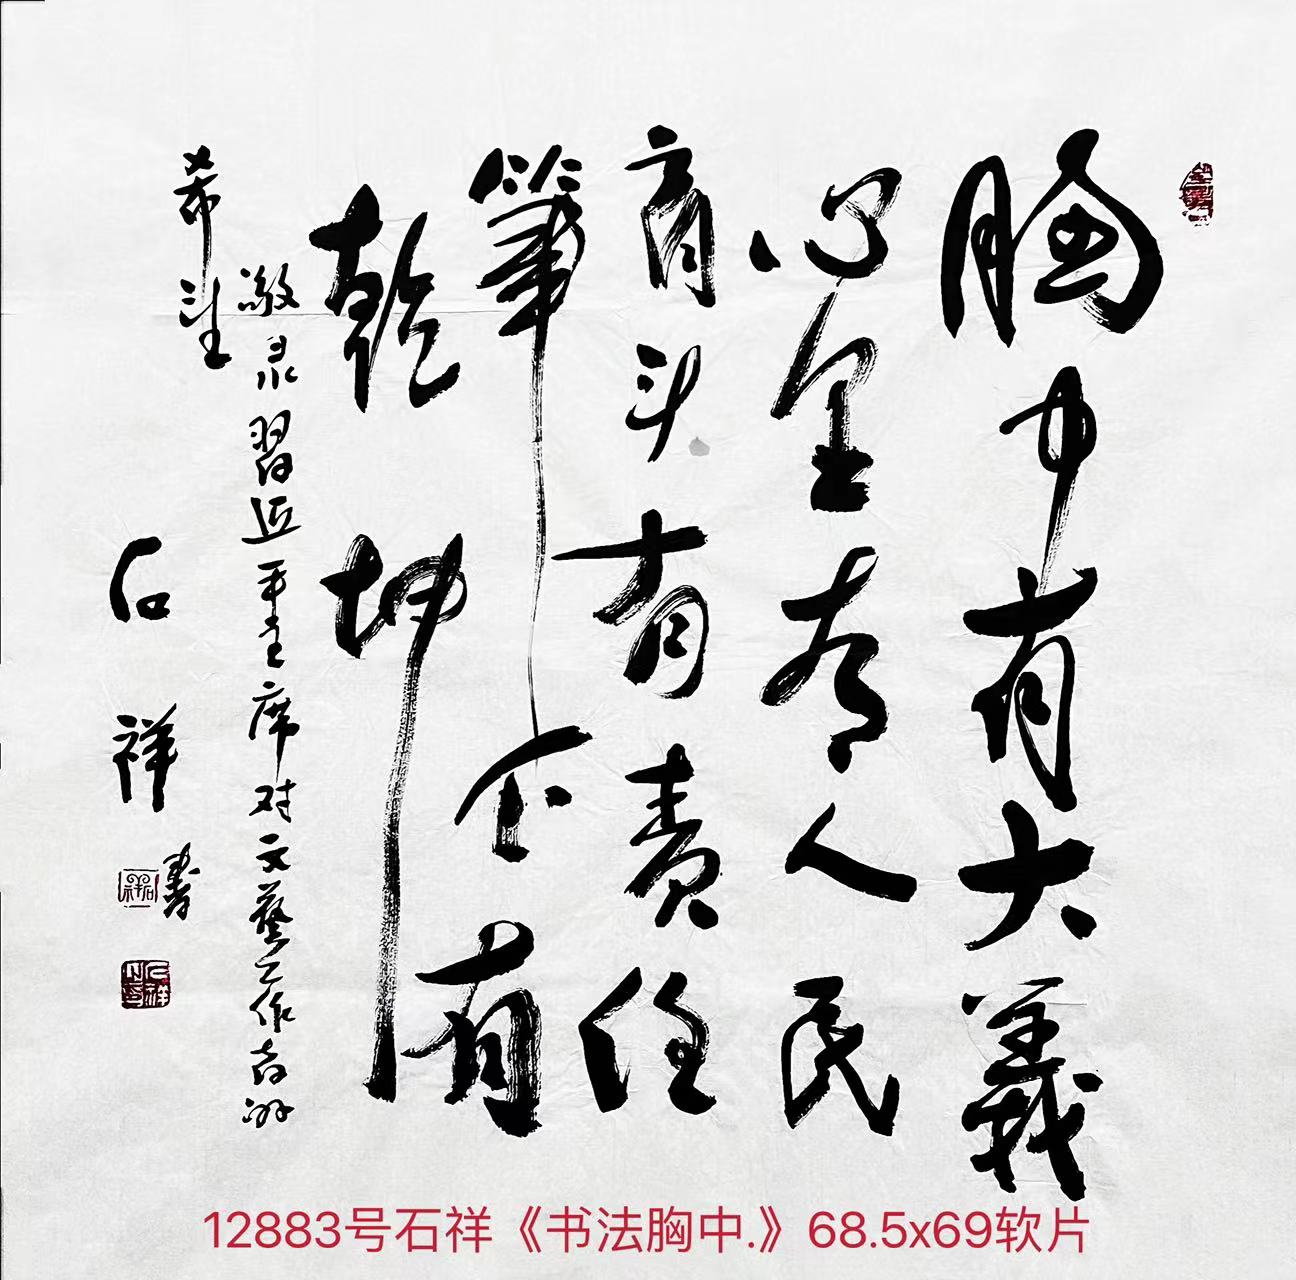 胸中有大義
心里有人民
肩头有責任
筆下有
乾坤
敬录習近平主席对文藝工作者的
希望
石祥書
12883号石祥《书法胸中.》68.5x69软片